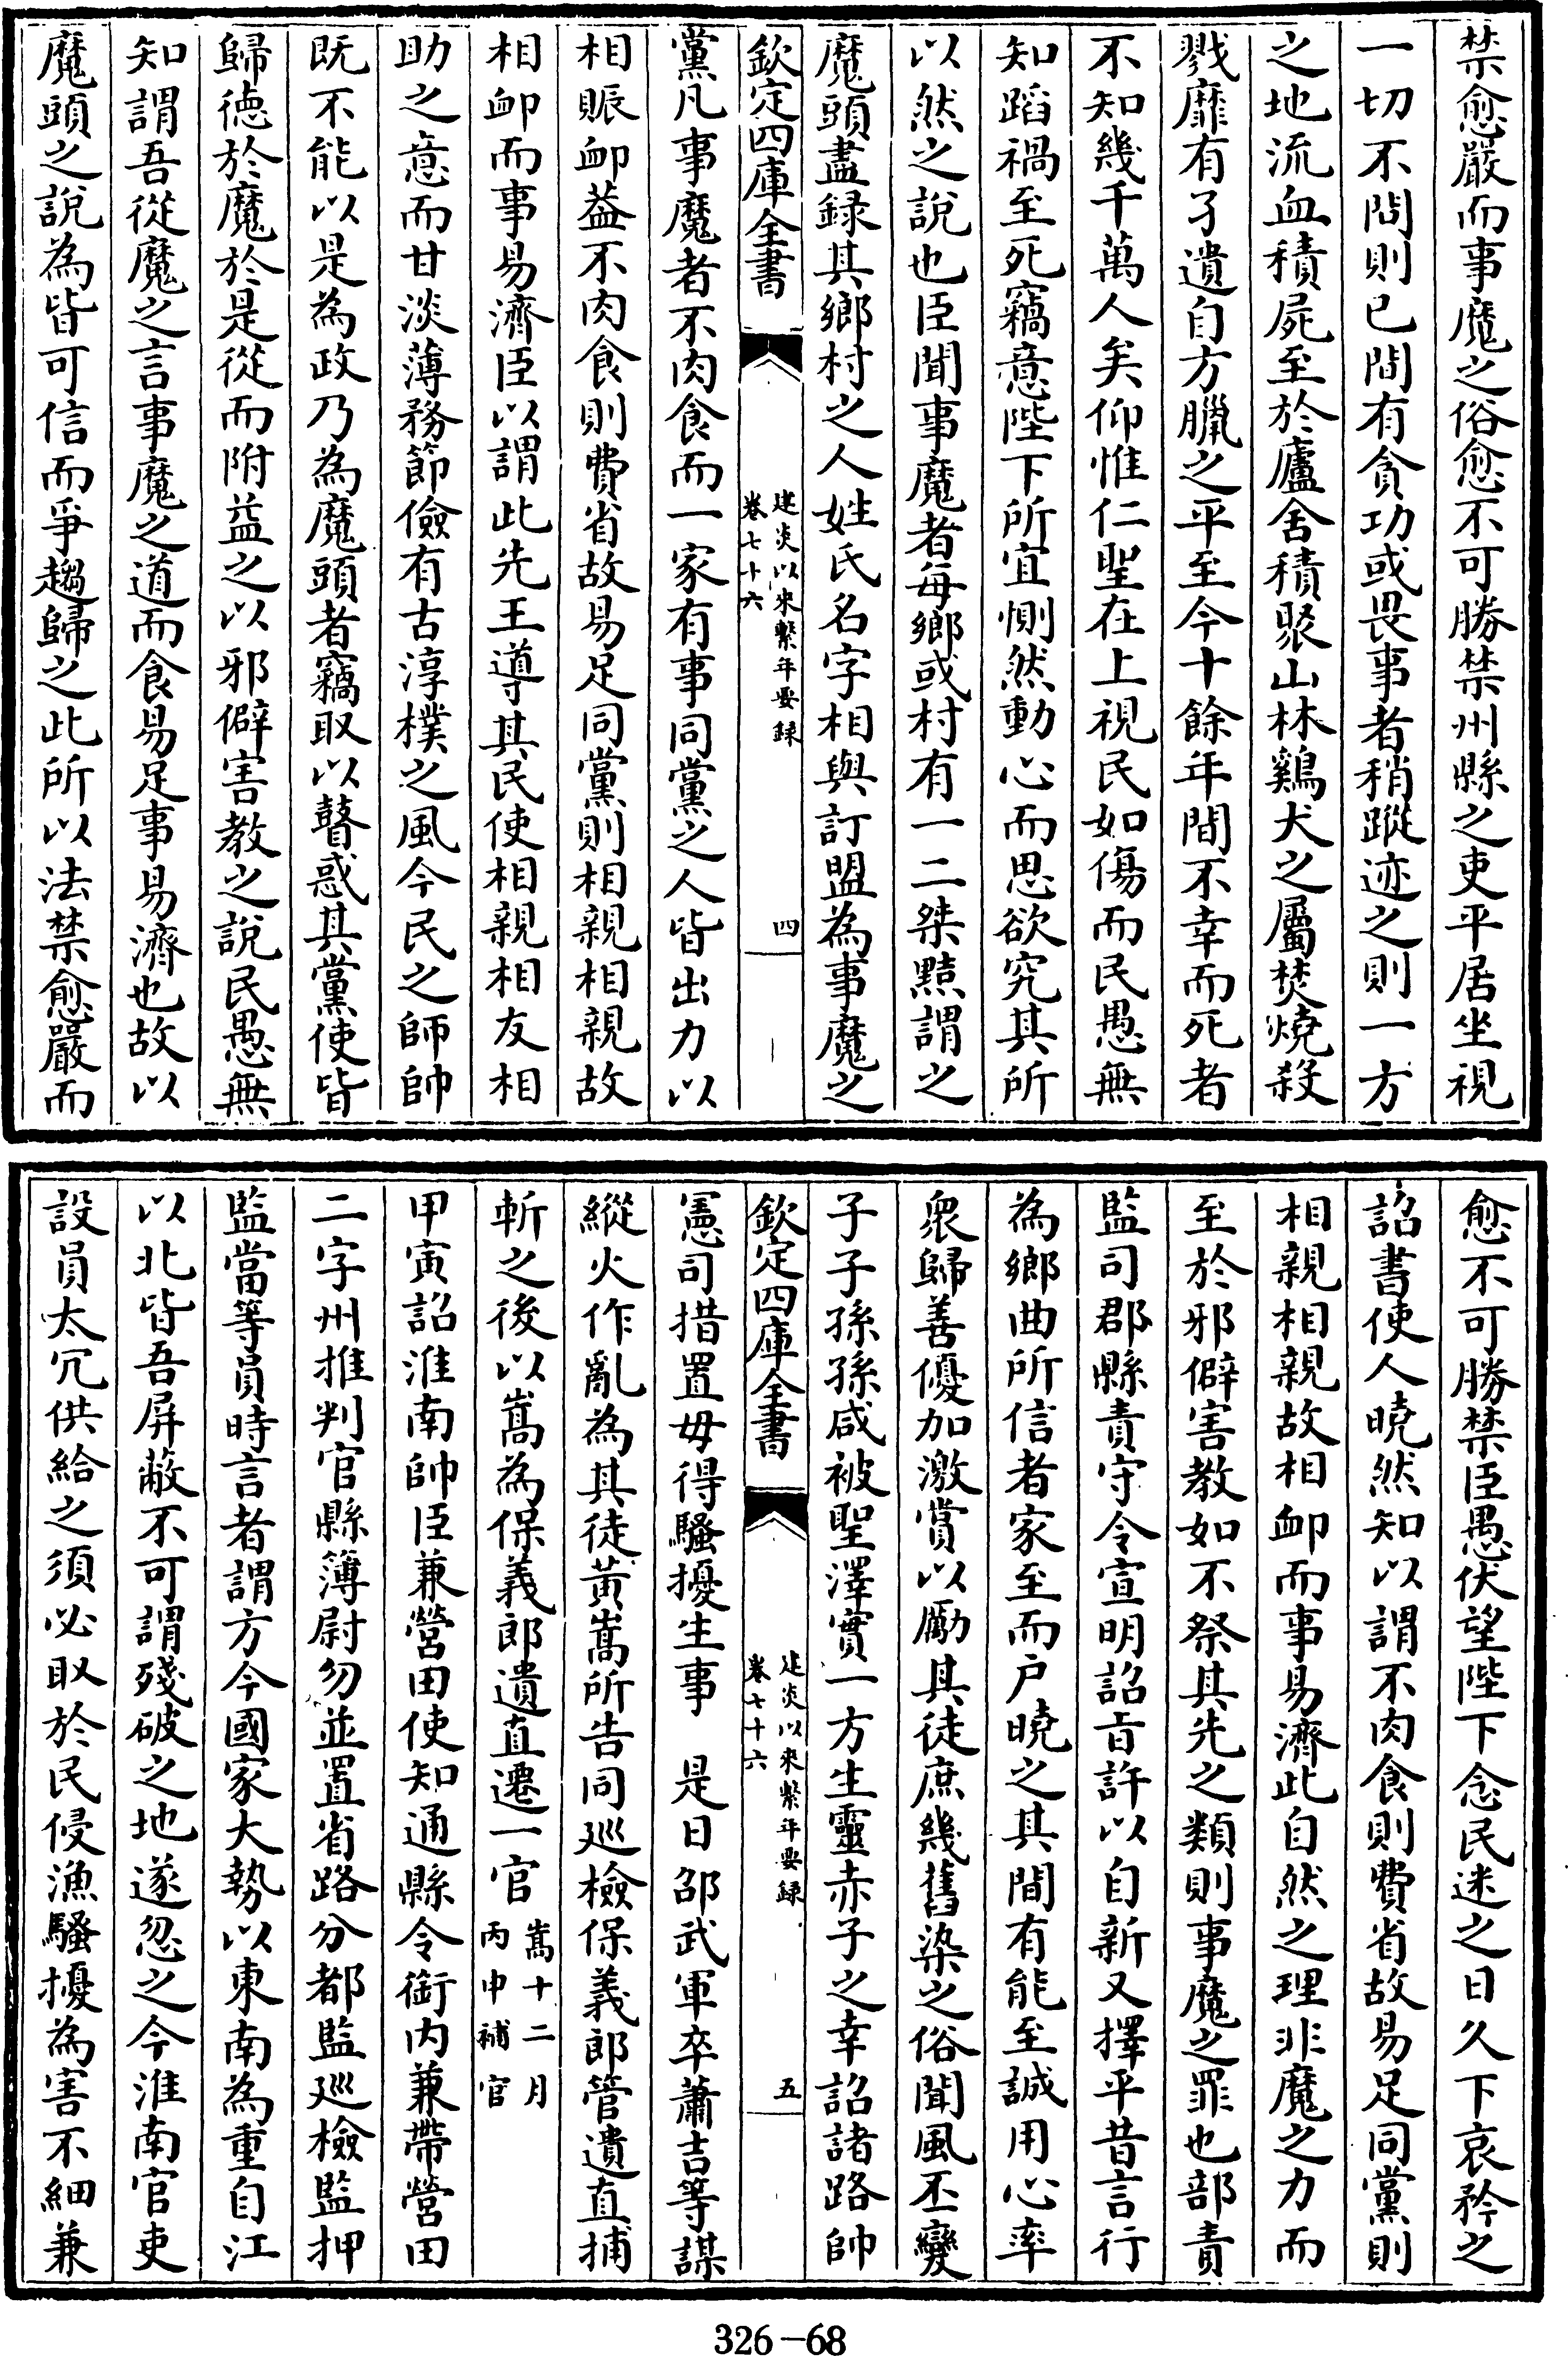 禁愈嚴而事魔之俗愈不可勝禁州縣之吏平居坐視
一切不問則已間有貪功或畏事者稍蹤迹之則一方
之地流血積屍至於廬舍積聚山林鷄犬之屬焚燒殺
戮靡有孑遺自方臘之平至今十餘年間不幸而死者
不知幾千萬人矣仰惟仁聖在上視民如傷而民愚無
知蹈禍至死竊意陛下所宜惻然動心而思欲究其所
以然之說也臣聞事魔者每鄉或村有一二桀黠謂之
魔頭盡録其鄉村之人姓氏名字相與訂盟為事魔之
欽定四庫全書
建炎以來繫年要録
卷七十六
四
黨凡事魔者不肉食而一家有事同黨之人皆出力以
相賑䘏葢不肉食則費省故易足同黨則相親相親故
相䘏而事易濟臣以謂此先王導其民使相親相友相
助之意而甘淡薄務節儉有古淳樸之風今民之師帥
既不能以是為政乃為魔頭者竊取以瞽惑其黨使皆
歸徳於魔於是從而附益之以邪僻害教之說民愚無
知謂吾從魔之言事魔之道而食易足事易濟也故以
魔頭之說為皆可信而爭趨歸之此所以法禁愈嚴而
愈不可勝禁臣愚伏望陛下念民迷之日久下哀矜之
詔書使人曉然知以謂不肉食則費省故易足同黨則
相親相親故相䘏而事易濟此自然之理非魔之力而
至於邪僻害教如不祭其先之類則事魔之罪也部責
監司郡縣責守令宣明詔㫖許以自新又擇平昔言行
為鄉曲所信者家至而户曉之其間有能至誠用心率
衆歸善優加激賞以勵其徒庶幾舊染之俗聞風丕變
子子孫孫咸被聖澤實一方生靈赤子之幸詔諸路帥
欽定四庫全書
建炎以來繫年要録
卷七十六
五
憲司措置毋得騷擾生事　是日邵武軍卒蕭吉等謀
縱火作亂為其徒黄嵩所告同廵檢保義郎管遺直捕
斬之後以嵩為保義郎遺直遷一官嵩十二月
丙申補官
甲寅詔淮南帥臣兼營田使知通縣令銜内兼帶營田
二字州推判官縣簿尉勿並置省路分都監廵檢監押
監當等員時言者謂方今國家大勢以東南為重自江
以北皆吾屏蔽不可謂殘破之地遂忽之今淮南官吏
設員太冗供給之須必取於民侵漁騷擾為害不細兼
326-68